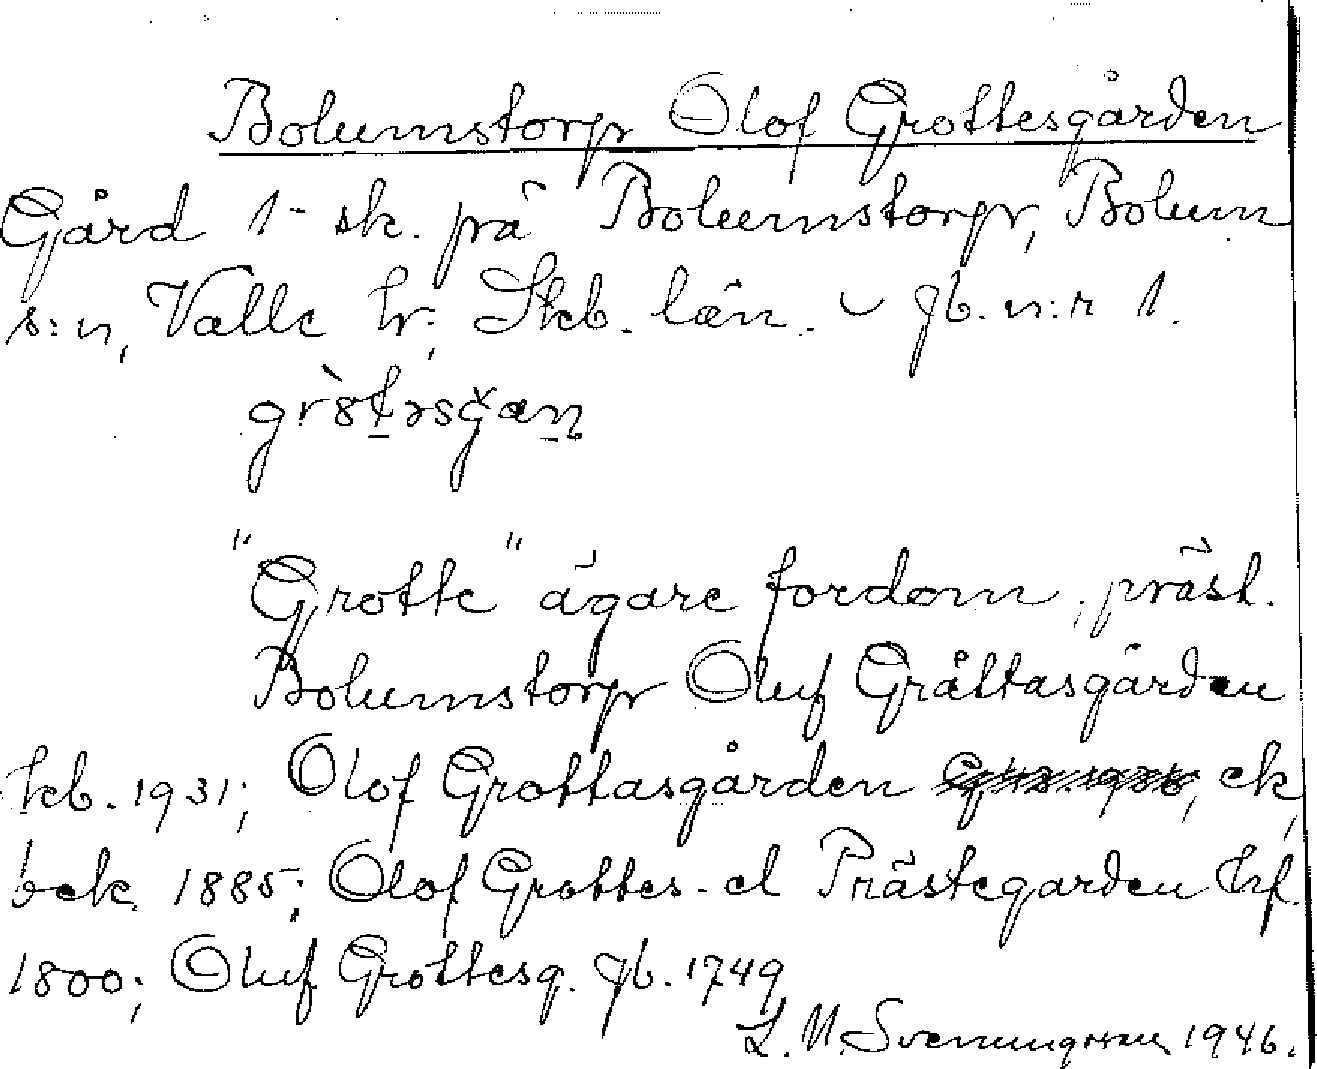 Bolumstorp Olof Grottesgården
Gård 1- sk. på Bolumstorp, Bolum
s:n, Valle hr; Skb. län. gb. n:r 1.
"Grotte" ägare fordom; präst.
Bolumstorp Oluf Gråttasgården
kb. 1931; Olof Grottasgården, ek.
bek. 1885; Olof Grottes- el Prästegarden hf.
1800; Oluf Grottesg. gb. 1749
L. M. Svenungsson 1946.